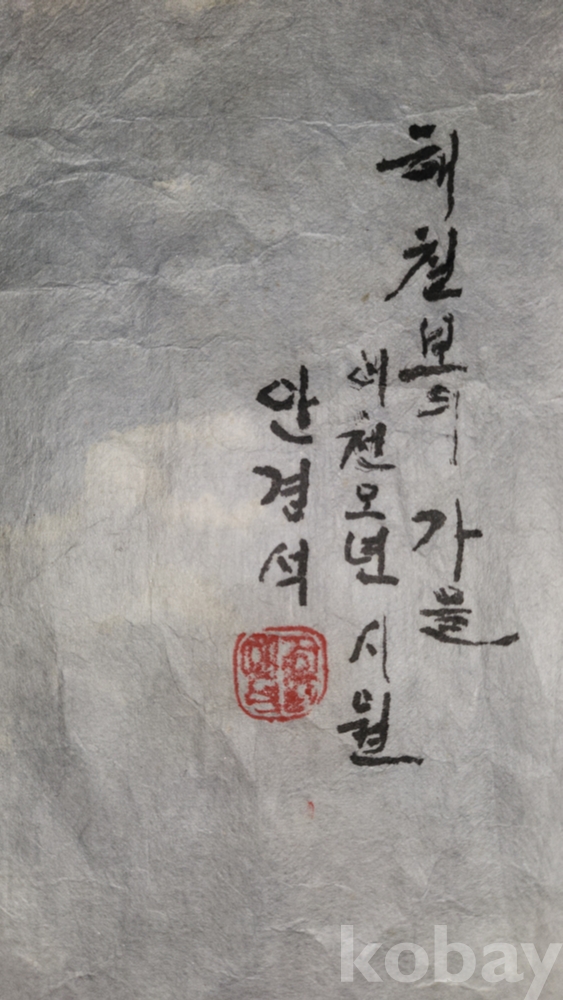 해칠보의 가을
이천오년 시월
안경석
kobay